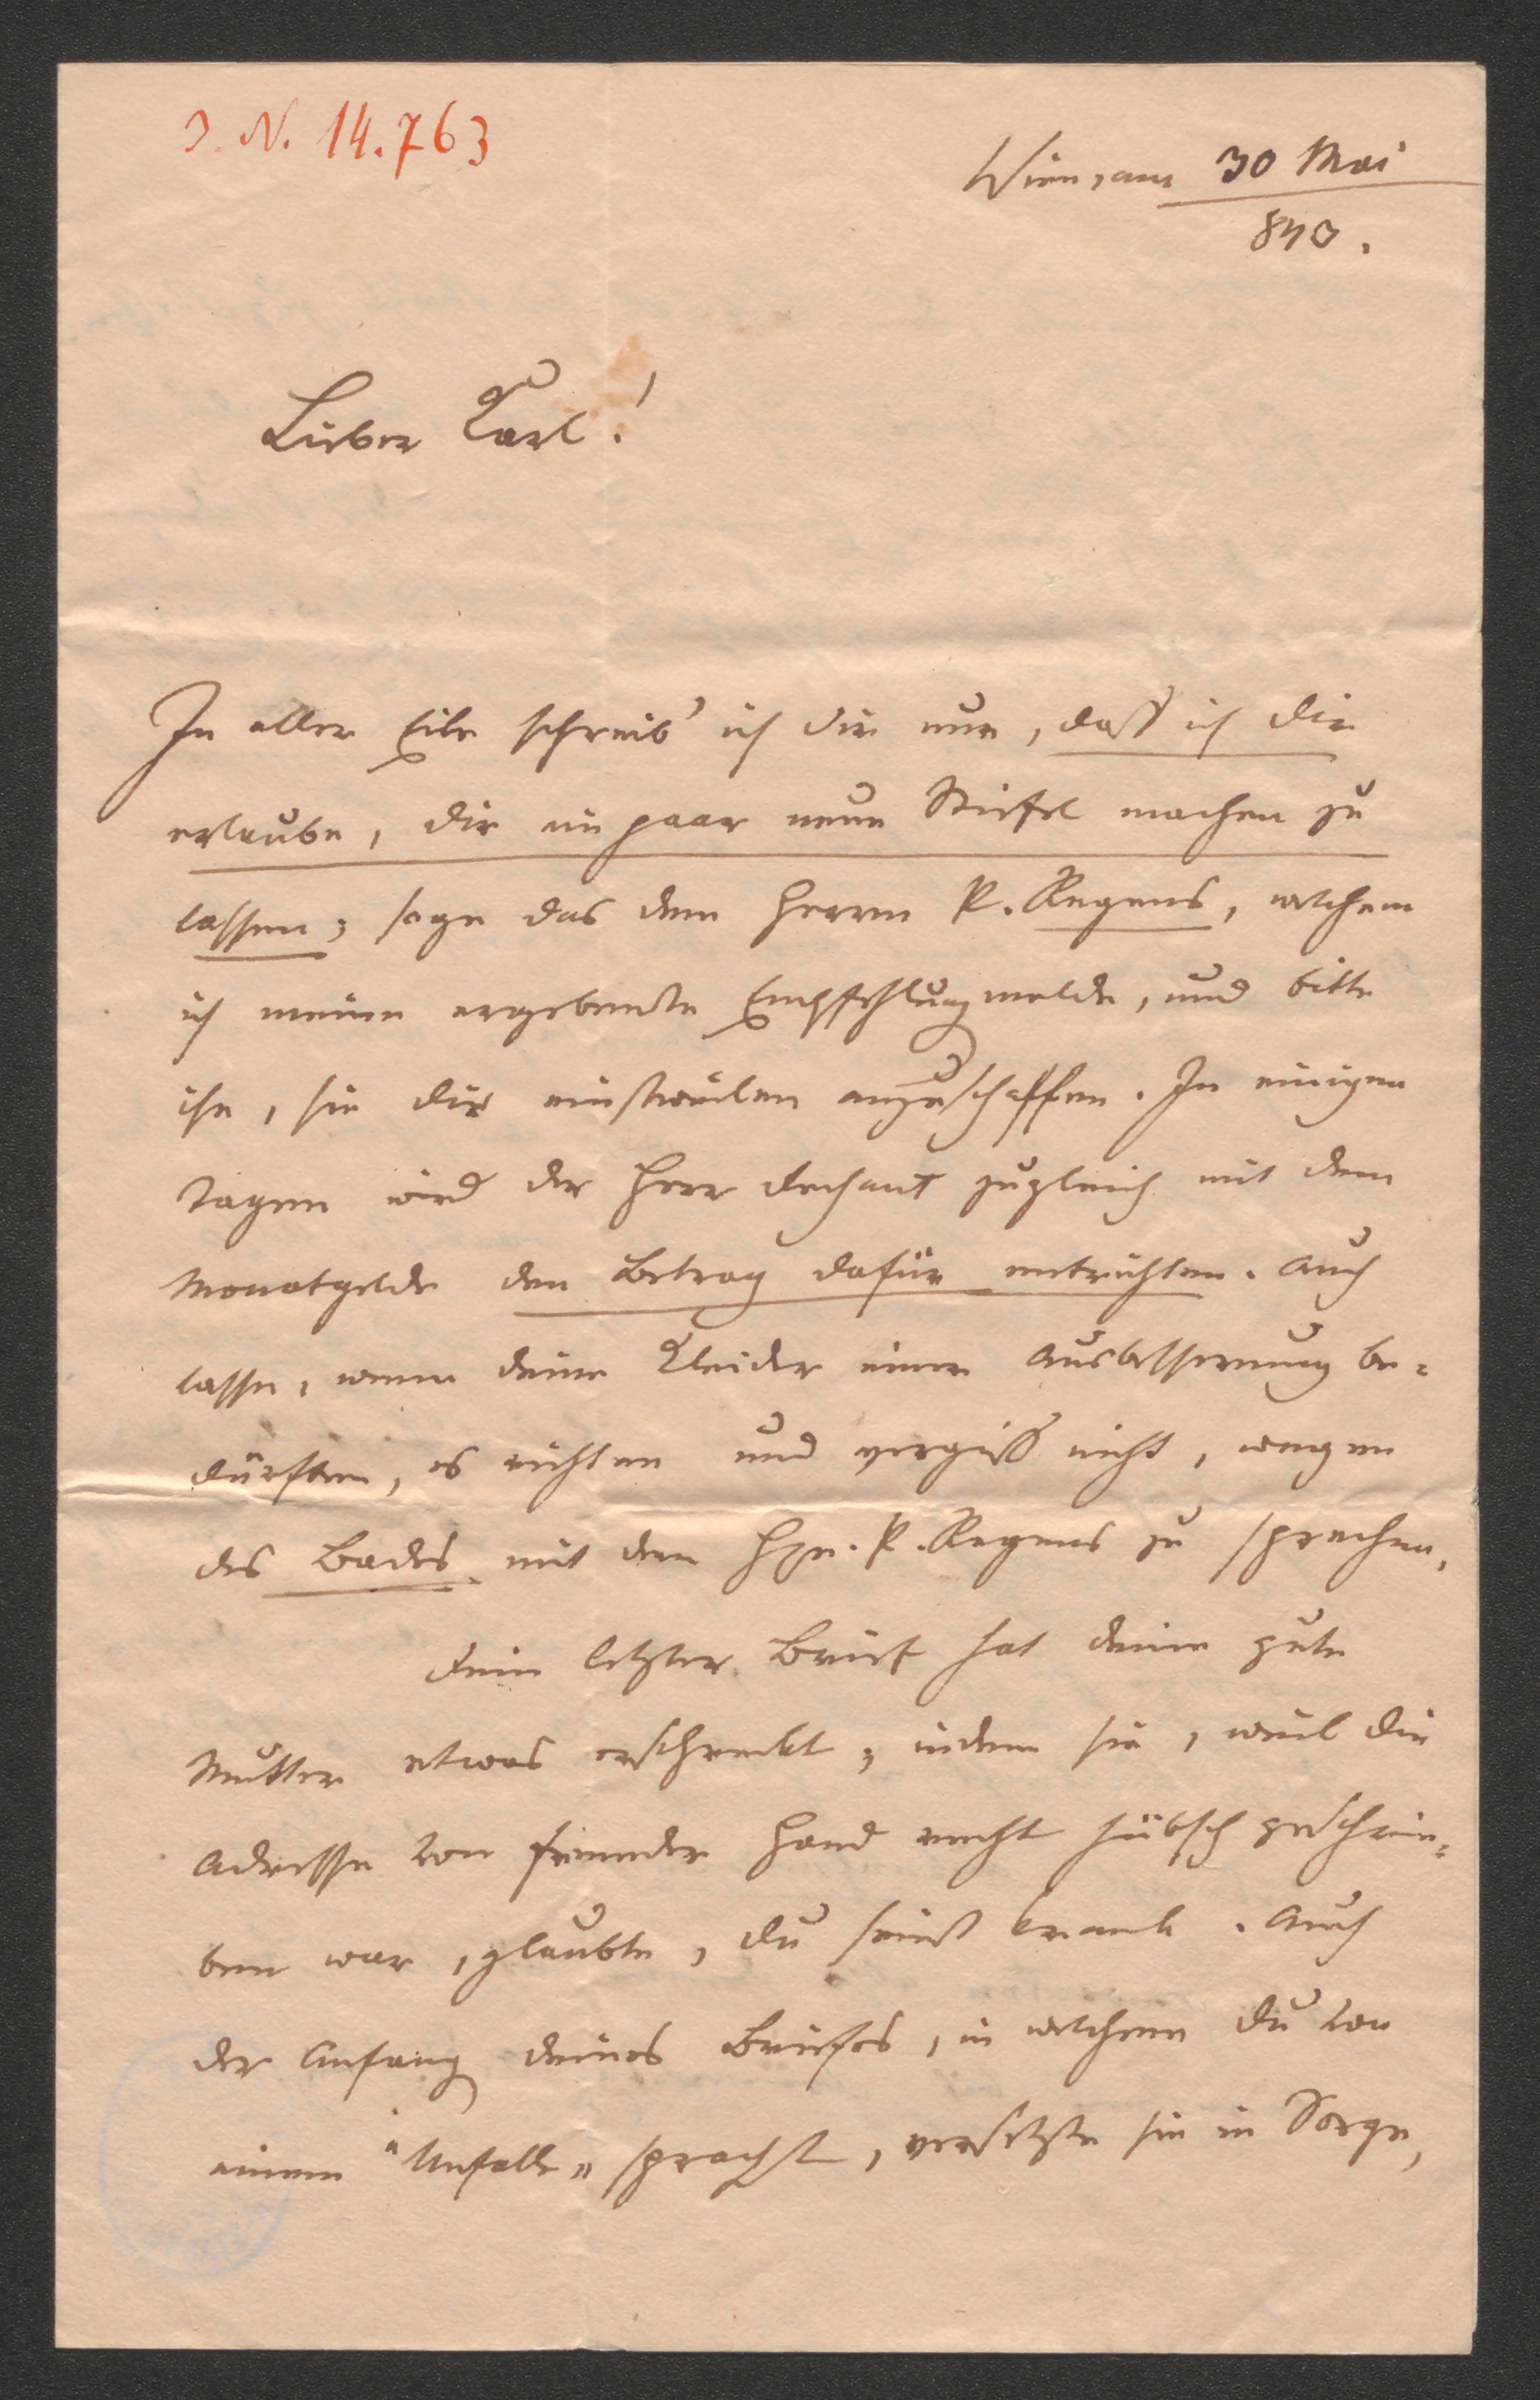 J. N. 14.763
Wien, am 30 Mai
840.
Lieber Carl!
In aller Eile schreib' ich dir nur, daß ich dir
erlaube, dir ein paar neue Stiefel machen zu
lassen; sage das dem Herrn P. Regens, welchem
ich meine ergebenste Empfehlung melde, und bitte
ihn, sie dir einstweilen anzuschaffen. In einigen
Tagen wird der Herr Dechant zugleich mit dem
Monatgelde den Betrag dafür entrichten. Auch
lasse, wenn deine Kleider einer Ausbesserung be-
dürften, es richten und vergiß nicht, wegen
des Bades mit dem Hrn. P. Regens zu sprechen.
Dein letzter Brief hat deine gute
Mutter etwas erschreckt; indem sie, weil die
Adresse von fremder Hand recht hübsch geschrie-
ben war, glaubte, du seiest krank. Auch
der Anfang deines Briefes, in welchem du von
einem "Unfalle" sprachst, versetzte sie in Sorge,